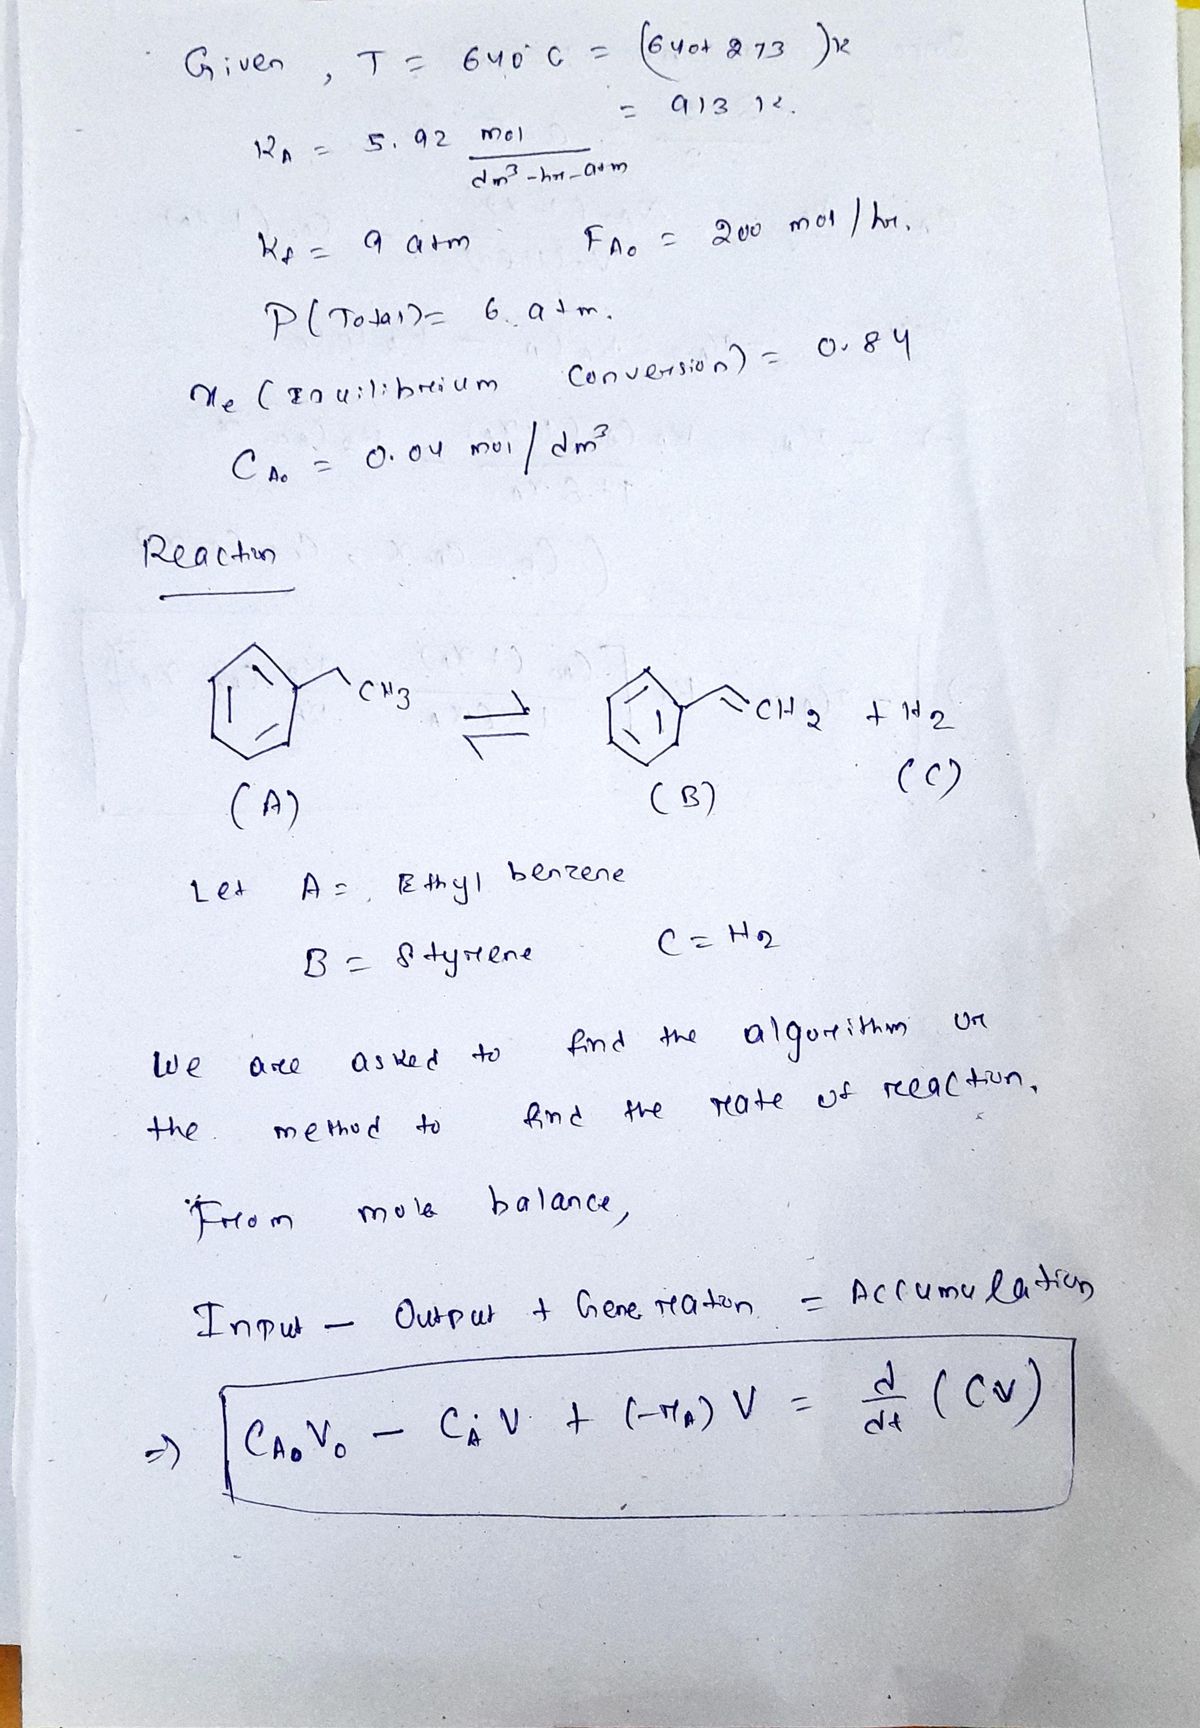 Given, T = 640°C = (640+273)K
= 913 K.
K_A = 5.92 mol / dm³-hr-atm
K_P = 9 atm F_A0 = 200 mol/hr.
P(Total) = 6 atm.
x_e (Equilibrium Conversion) = 0.84
C_A0 = 0.04 mol/dm³
Reaction
CH3 ⇌ CH2 + H2
(A) (B) (C)
Let A = Ethyl benzene
B = Styrene C = H2
We are asked to find the algorithm or
the method to find the rate of reaction.
From mole balance,
Input - Output + Generation = Accumulation
⇒ C_A0 V_0 - C_A V + (-r_A) V = d/dt (CV)